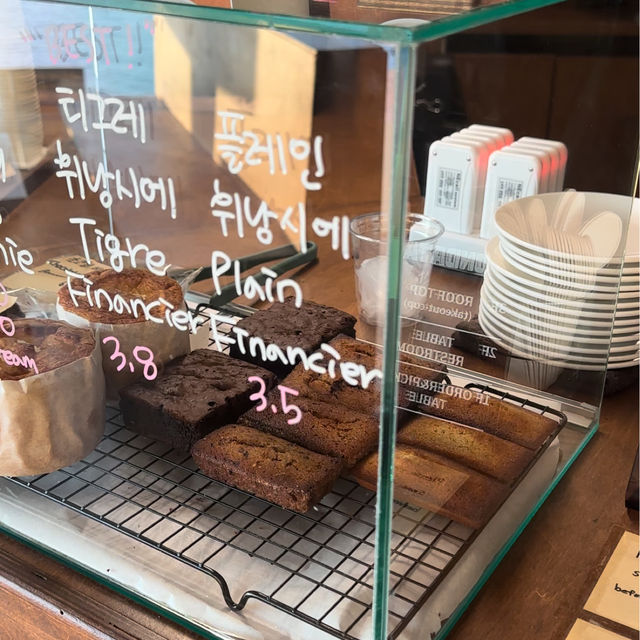 티그레
휘낭시에
Tigre
Financier
3.8
플레인
휘낭시에
Plain
Financier
3.5
ROOF-TOP
(takeout cup)
2F TABLE
RESTROOM
1F ORDER&PICK
TABLE